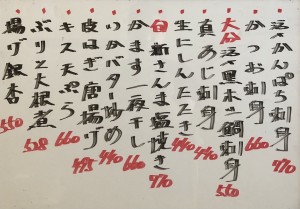 活〆かんぱち刺身 770
かつお刺身
大分 活〆黒木の鯛刺身 560
真あじ刺身 440
生にしんたたき 440
旬 新さんま塩焼き 770
かます一夜干し 660
いかバター炒め 440
皮はぎ唐揚げ 495
キス天ぷら 660
ぶりと大根煮 528
揚げ銀杏 550